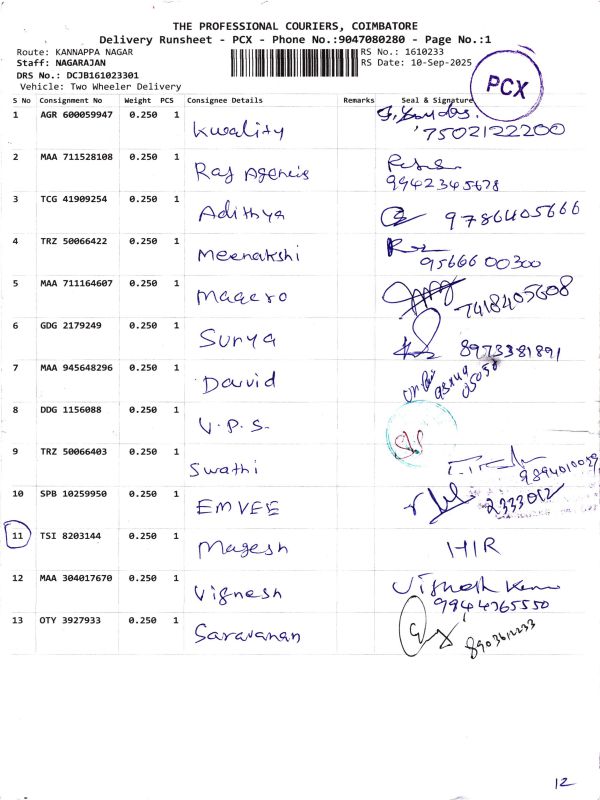 THE PROFESSIONAL COURIERS, COIMBATORE
Delivery Runsheet - PCX - Phone No.:9047080280 - Page No.:1
Route: KANNAPPA NAGAR RS No.: 1610233
Staff: NAGARAJAN RS Date: 10-Sep-2025
DRS No.: DCJB161023301
Vehicle: Two Wheeler Delivery
PCX
S No Consignment No Weight PCS Consignee Details Remarks Seal & Signature
1 AGR 600059947 0.250 1 Kwality 7502122200
2 MAA 711528108 0.250 1 Raj Agencis 9942345678
3 TCG 41909254 0.250 1 Adithya 9786405666
4 TRZ 50066422 0.250 1 Meenakshi 9566600300
5 MAA 711164607 0.250 1 Magero 7418405608
6 GDG 2179249 0.250 1 Surya 8973381891
7 MAA 945648296 0.250 1 David
8 DDG 1156088 0.250 1 V.P.S.
9 TRZ 50066403 0.250 1 Swathi
10 SPB 10259950 0.250 1 EMVEE 2333012
11 TSI 8203144 0.250 1 Magesh HIR
12 MAA 304017670 0.250 1 Vignesh
9944365550
13 OTY 3927933 0.250 1 Saravanan 8903612233
12